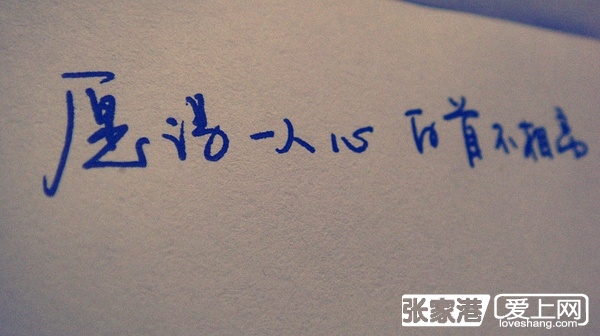 愿得一人心 白首不相离
张家港 爱上网
loveshang.com